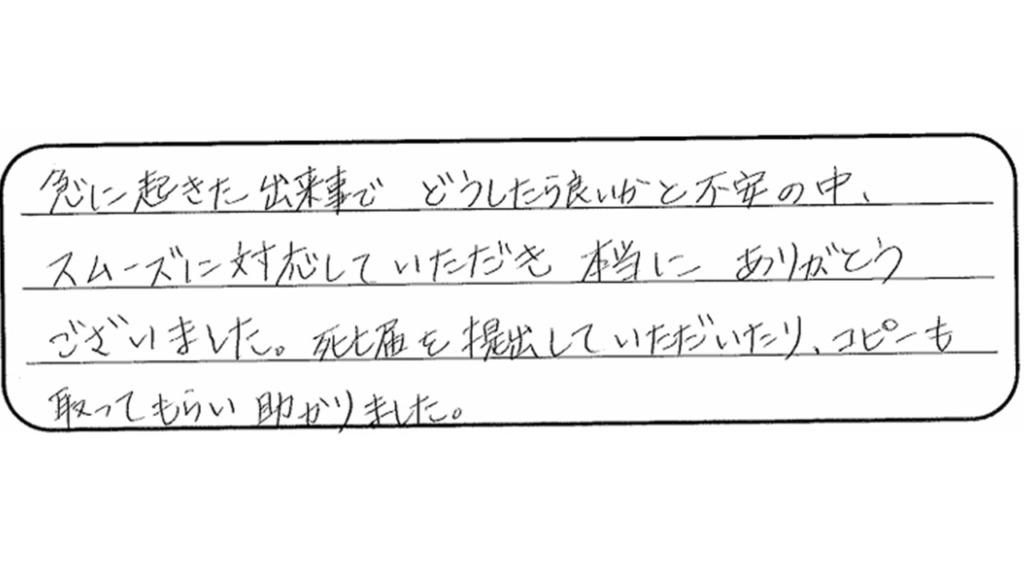 急に起きた出来事で どうしたら良いかと不安の中、
スムーズに対応していただき 本当に ありがとう
ございました。死亡届を提出していただいたり、コピーも
取ってもらい 助かりました。